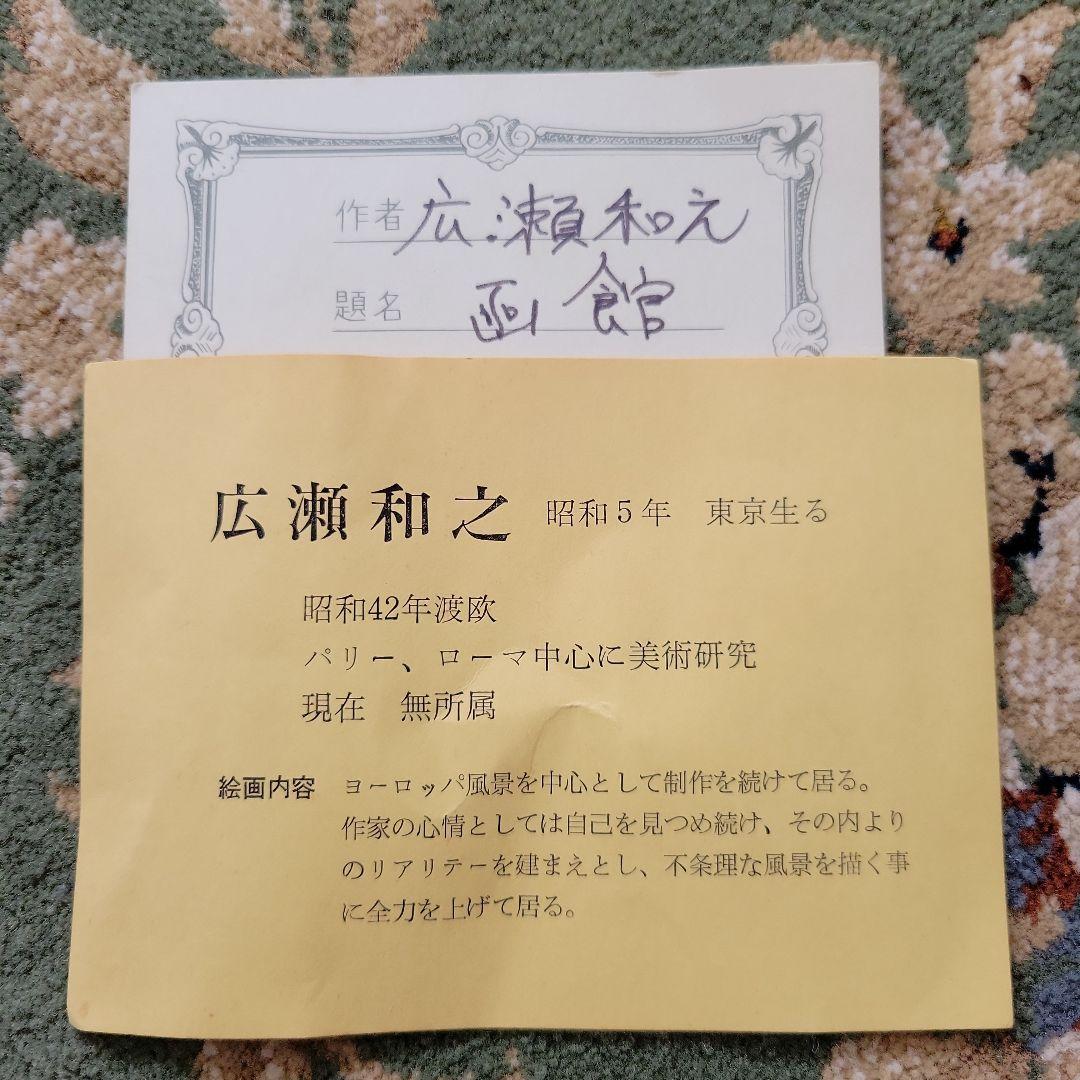 作者 広瀬和之
題名 函館
広瀬和之 昭和5年 東京生る
昭和42年渡欧
パリー、ローマ中心に美術研究
現在 無所属
絵画内容 ヨーロッパ風景を中心として制作を続けて居る。
作家の心情としては自己を見つめ続け、その内より
のリアリテーを建まえとし、不条理な風景を描く事
に全力を上げて居る。